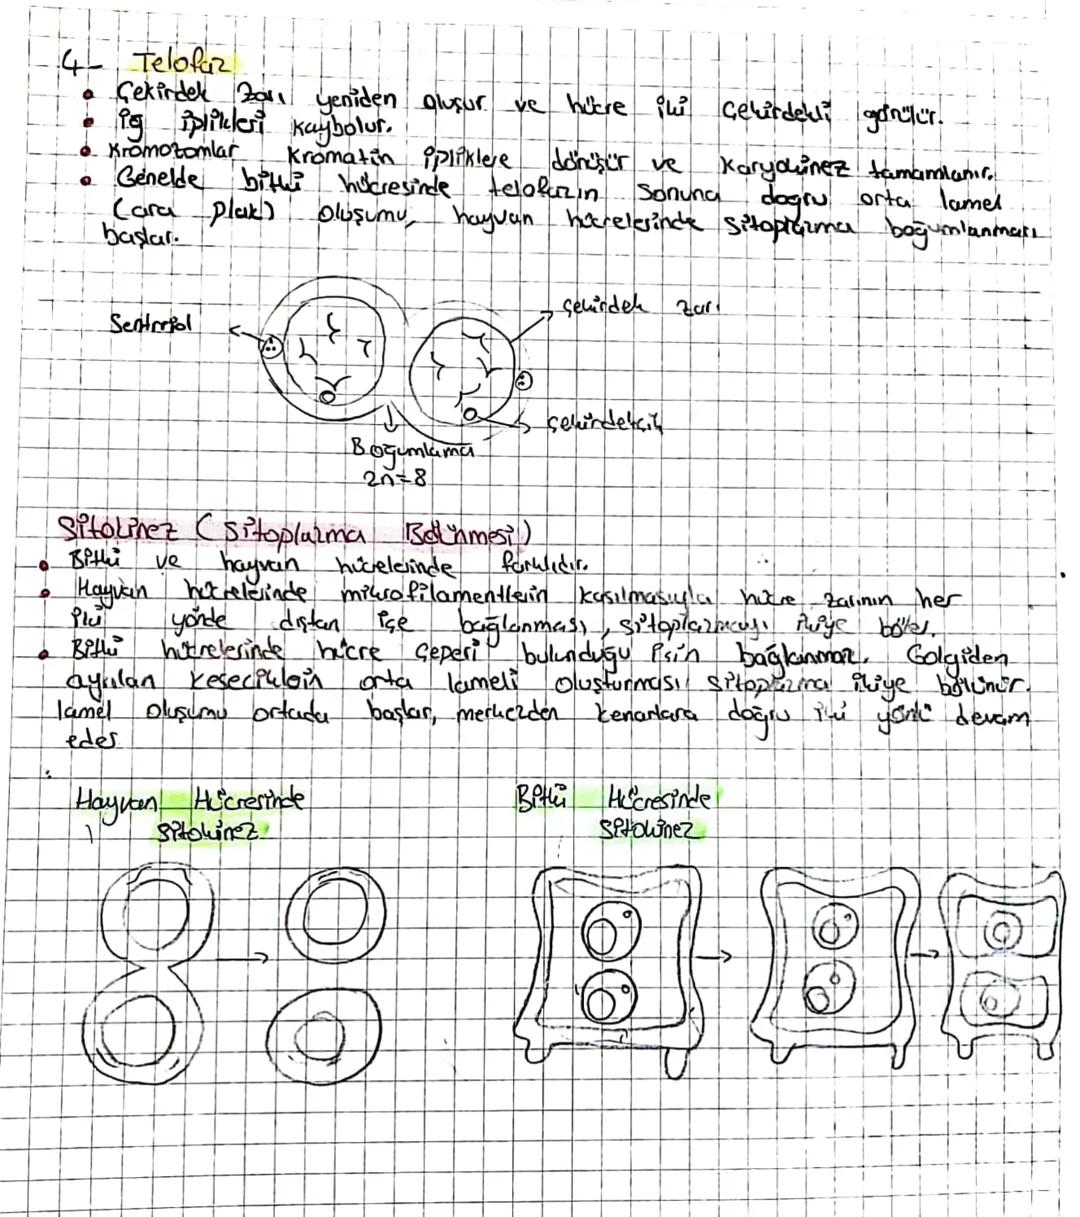 4- Telofaz
• Çekirdek zarı yeniden oluşur ve hücre iki çekirdekli görülür.
• iğ iplikleri kaybolur.
• Kromozomlar kromatin ipliklere dönüşür ve Karyokinez tamamlanır.
• Genelde bitki hücresinde telofazın sonuna doğru orta lamel
(ara plak) oluşumu, hayvan hücrelerinde sitoplazma boğumlanması
başlar.
Sentrozol
çekirdek zarı
çekirdekçik
Boğumlama
2n=8
Sitokinez (Sitoplazma Bölünmesi)
• Bitki ve hayvan hücrelerinde farklıdır.
• Hayvan hücrelerinde mikrofilamentlerin kasılmasıyla hücre zarının her
iki yönde dıştan içe bağlanması, sitoplazmayı ikiye böler.
• Bitki hücrelerinde hücre çeperi bulunduğu için bağlanmaz. Golgiden
ayrılan keseciklerin orta lameli oluşturması sitoplazma ikiye bölünür.
lamel oluşumu ortada başlar, merkezden kenarlara doğru iki yönlü devam
eder
Hayvan Hücresinde
Sitokinez
Bitki Hücresinde
Sitokinez